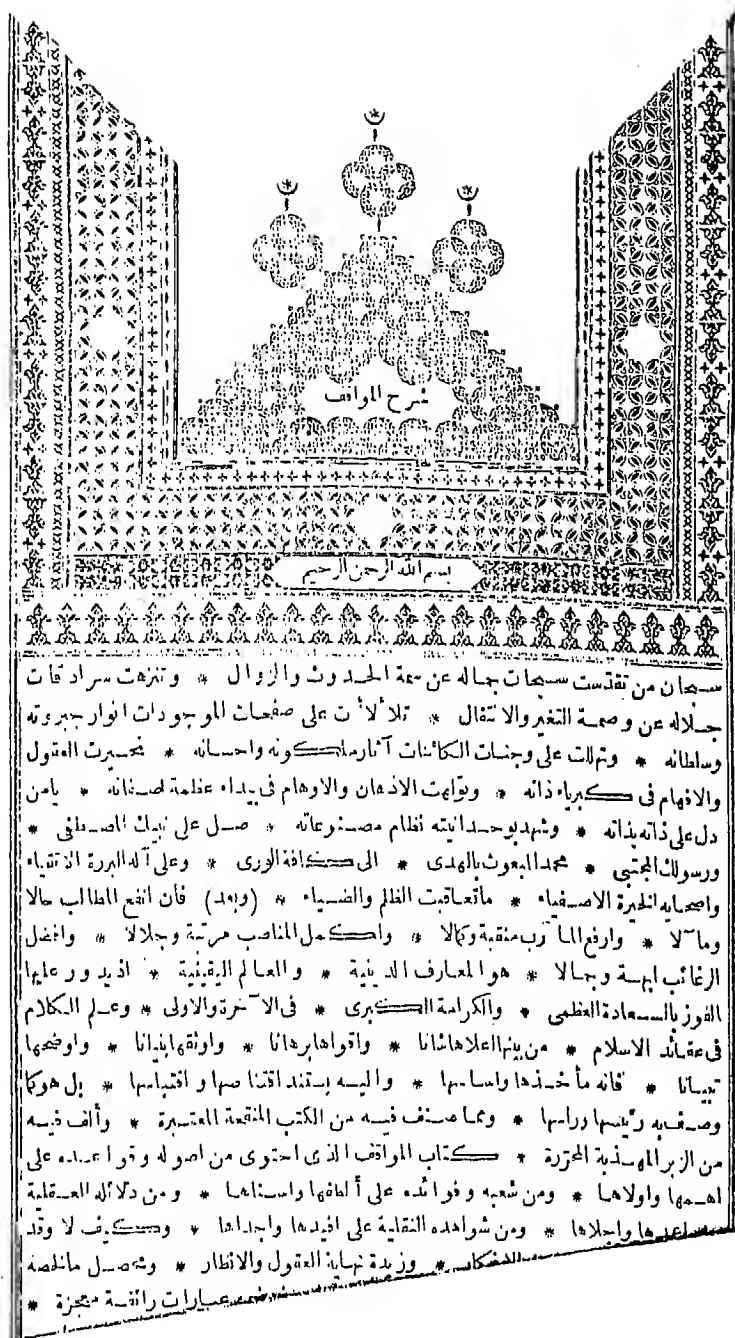 شرح المواقف
بسم الله الرحمن الرحيم
سبحان من تقدست سبحات جماله عن سمة الحدوث والزوال * وتنزهت سرادقات
جلاله عن وصمة التغير والانتقال * تلألأت على صفحات الموجودات انوار جبروته
وسلطانه * وتهللت على وجنات الكائنات آثار ملكوته واحسانه * تحيرت العقول
والافهام فى كبرياء ذاته * وتولهت الاذهان والاوهام فى بيداء عظمة صفاته * يامن
دل على ذاته بذاته * وشهد بوحدانيته نظام مصنوعاته * صل على نبيك المصطفى *
ورسولك المجتبى * محمد المبعوث بالهدى * الى كافة الورى * وعلى آله البررة الاتقياء
واصحابه الخيرة الاصفياء * ماتعاقبت الظلم والضياء * (وبعد) فان انفع المطالب حالا
ومآلا * وارفع المآرب منقبة وكمالا * واكمل المناصب مرتبة وجلالا * وافضل
الرغائب ابهة وجمالا * هو المعارف الدينية * والمعالم اليقينية * اذ يدور عليها
الفوز بالسعادة العظمى * والكرامة الكبرى * فى الآخرة والاولى * وعلم الكلام
فى عقائد الاسلام * من بينها اعلاها شانا * واقواها برهانا * واوثقها بنيانا * واوضحها
تبيانا * فانه مأخذها واساسها * واليه يستند اقتناصها واقتباسها * بل هو كما
وصف به رئيسها وراسها * ومما صنف فيه من الكتب المنقحة المعتبرة * وألف فيه
من الزبر المهذبة المحررة * كتاب المواقف الذى احتوى من اصوله وقواعده على
اهمها واولاها * ومن شعبه وفوائده على ألطفها واسناها * ومن دلائله العقلية
على اعمدها واجلاها * ومن شواهده النقلية على افيدها واجداها * وكيف لا وقد
* وزبدة نهاية العقول والانظار * ومحصل مالخصه
عبارات رائقة معجزة *